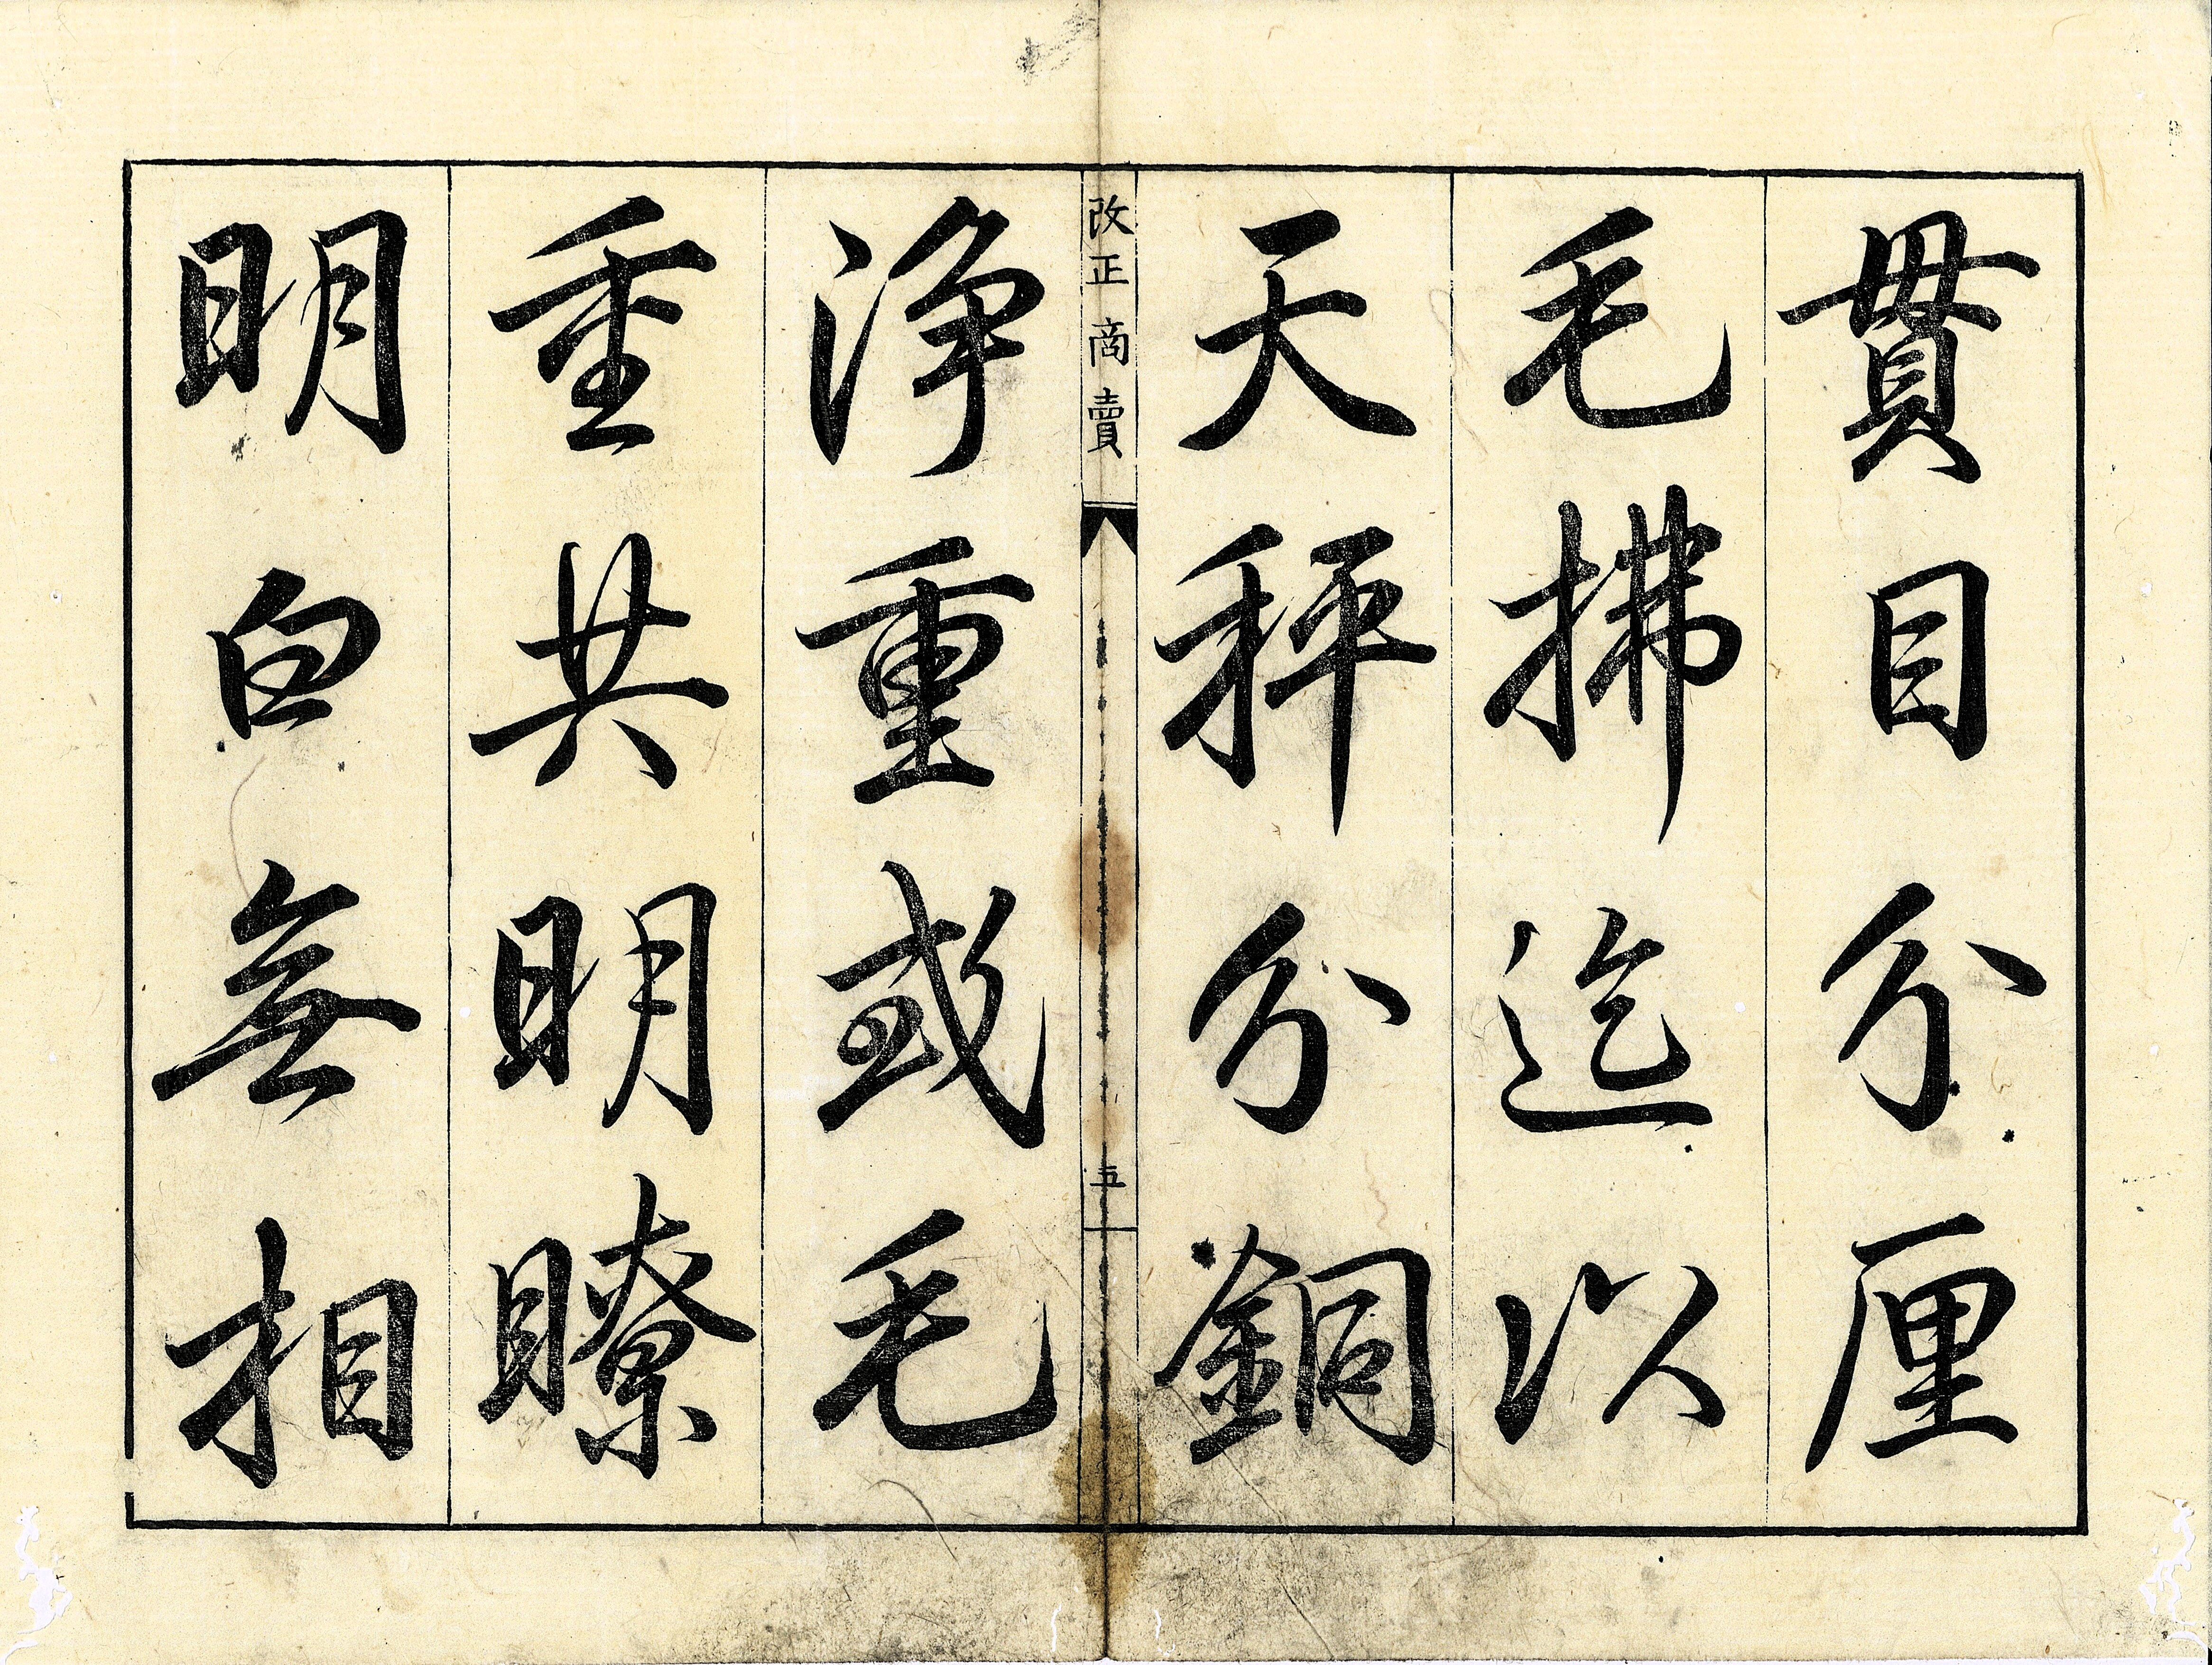 貫目分厘
毛拂迄以
天秤分銅
改正商賣
五
浄重或毛
重共明瞭
明白無相